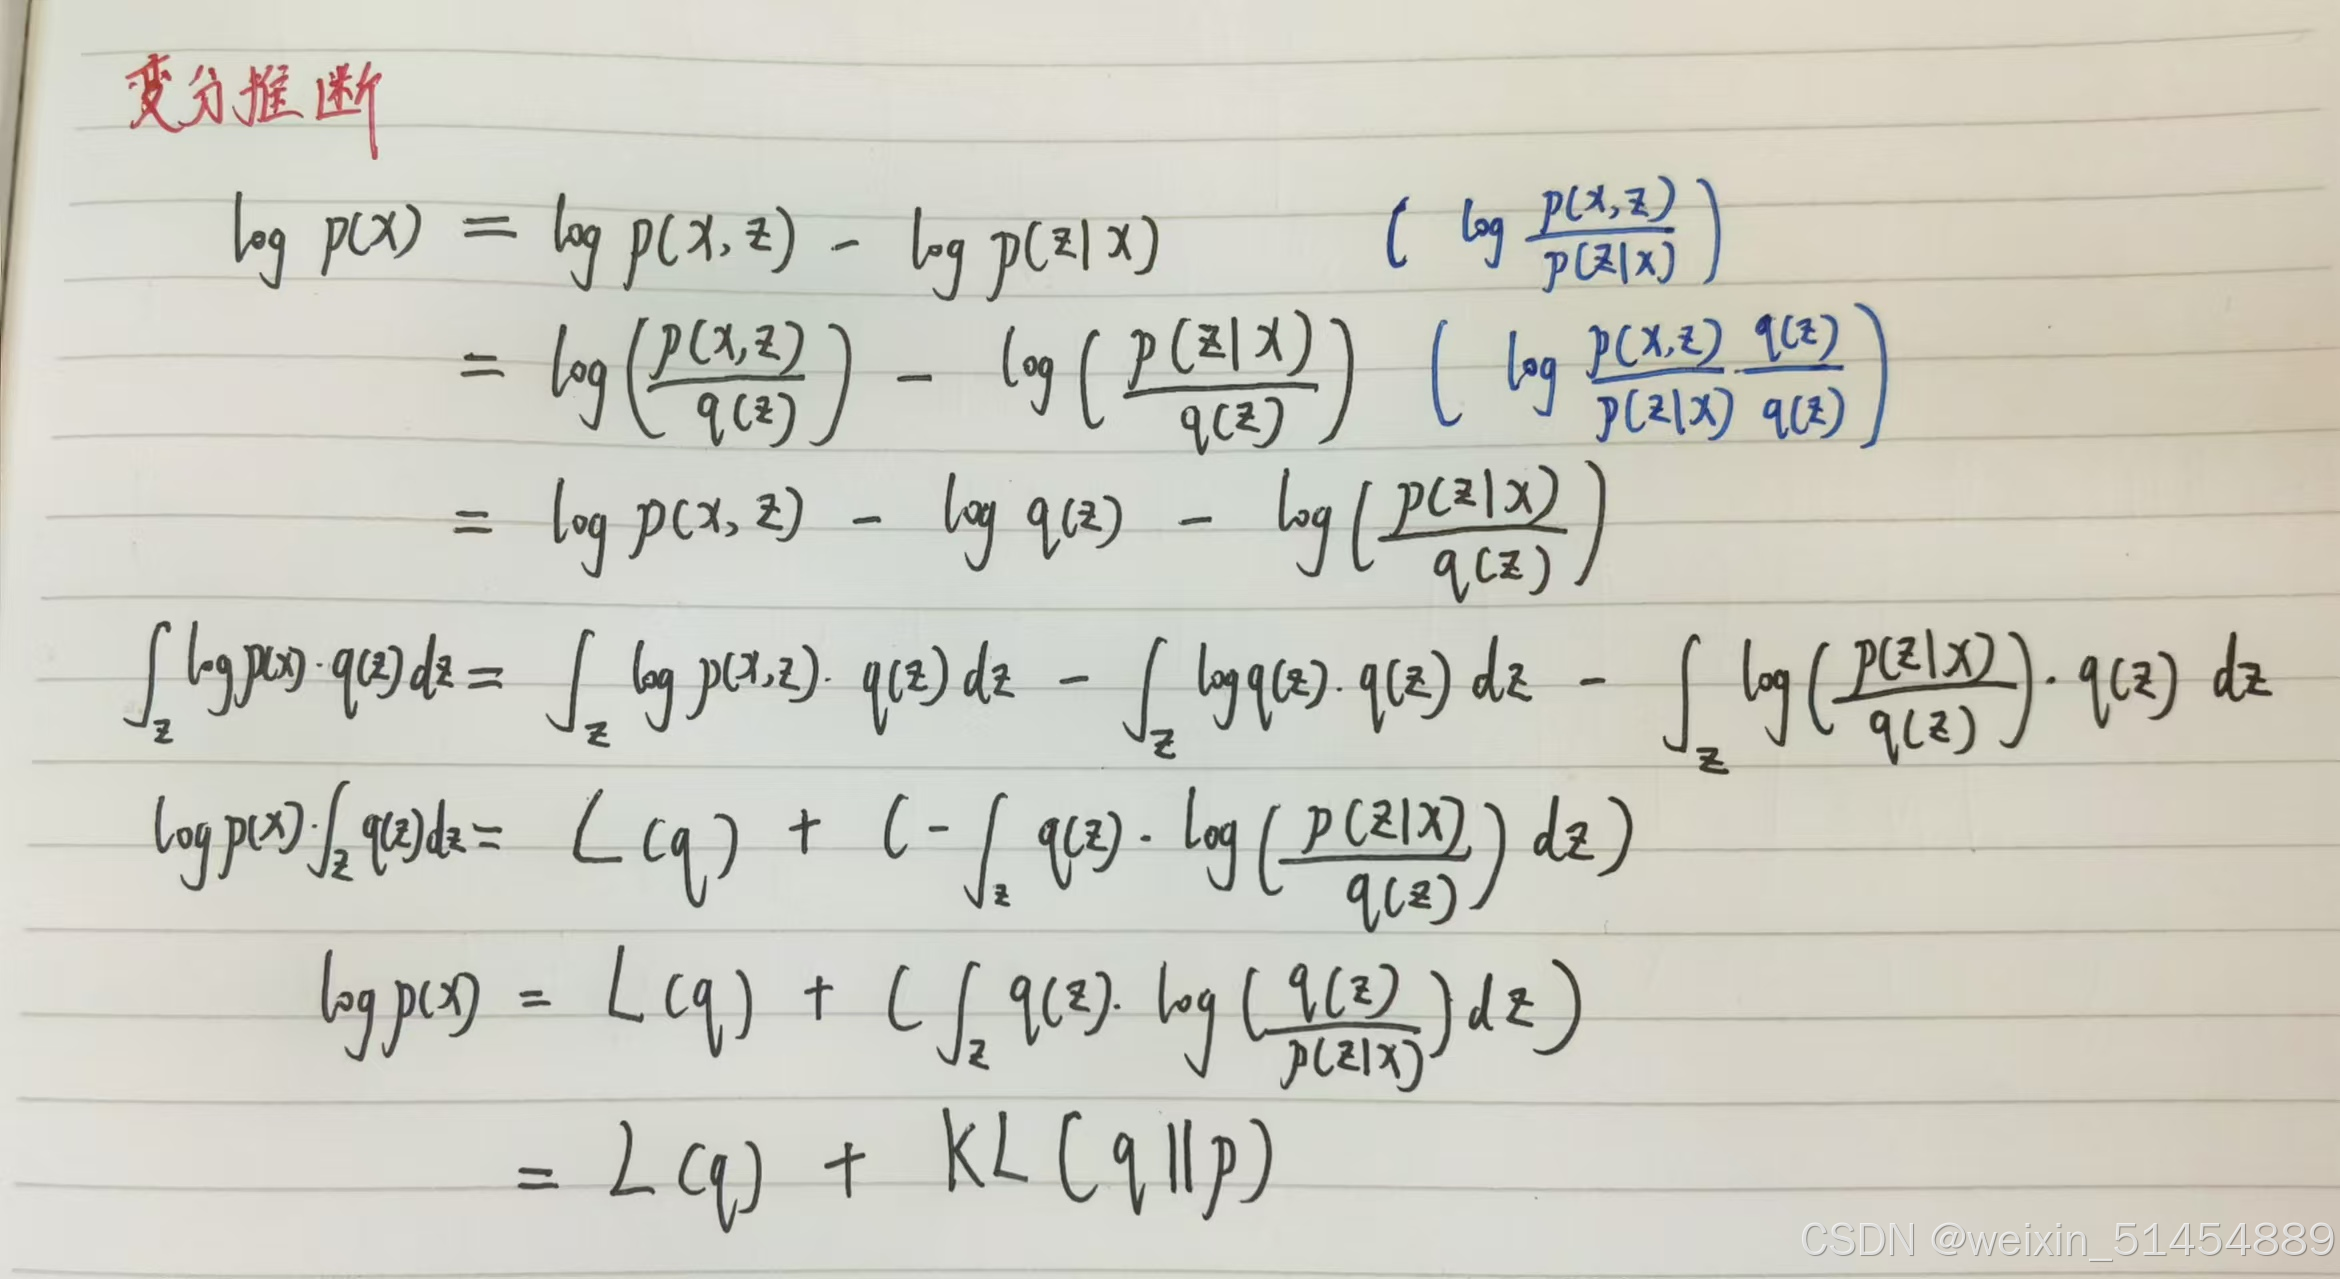 变分推断
log p(x) = log p(x,z) - log p(z|x) ( log \frac{p(x,z)}{p(z|x)} )
= log( \frac{p(x,z)}{q(z)} ) - log( \frac{p(z|x)}{q(z)} ) ( log \frac{p(x,z)}{p(z|x)} · \frac{q(z)}{q(z)} )
= log p(x,z) - log q(z) - log( \frac{p(z|x)}{q(z)} )
∫_z log p(x) · q(z) dz = ∫_z log p(x,z) · q(z) dz - ∫_z log q(z) · q(z) dz - ∫_z log( \frac{p(z|x)}{q(z)} ) · q(z) dz
log p(x) · ∫_z q(z) dz = L(q) + ( - ∫_z q(z) · log( \frac{p(z|x)}{q(z)} ) dz )
log p(x) = L(q) + ( ∫_z q(z) · log( \frac{q(z)}{p(z|x)} ) dz )
= L(q) + KL(q||p)
CSDN @weixin_51454889